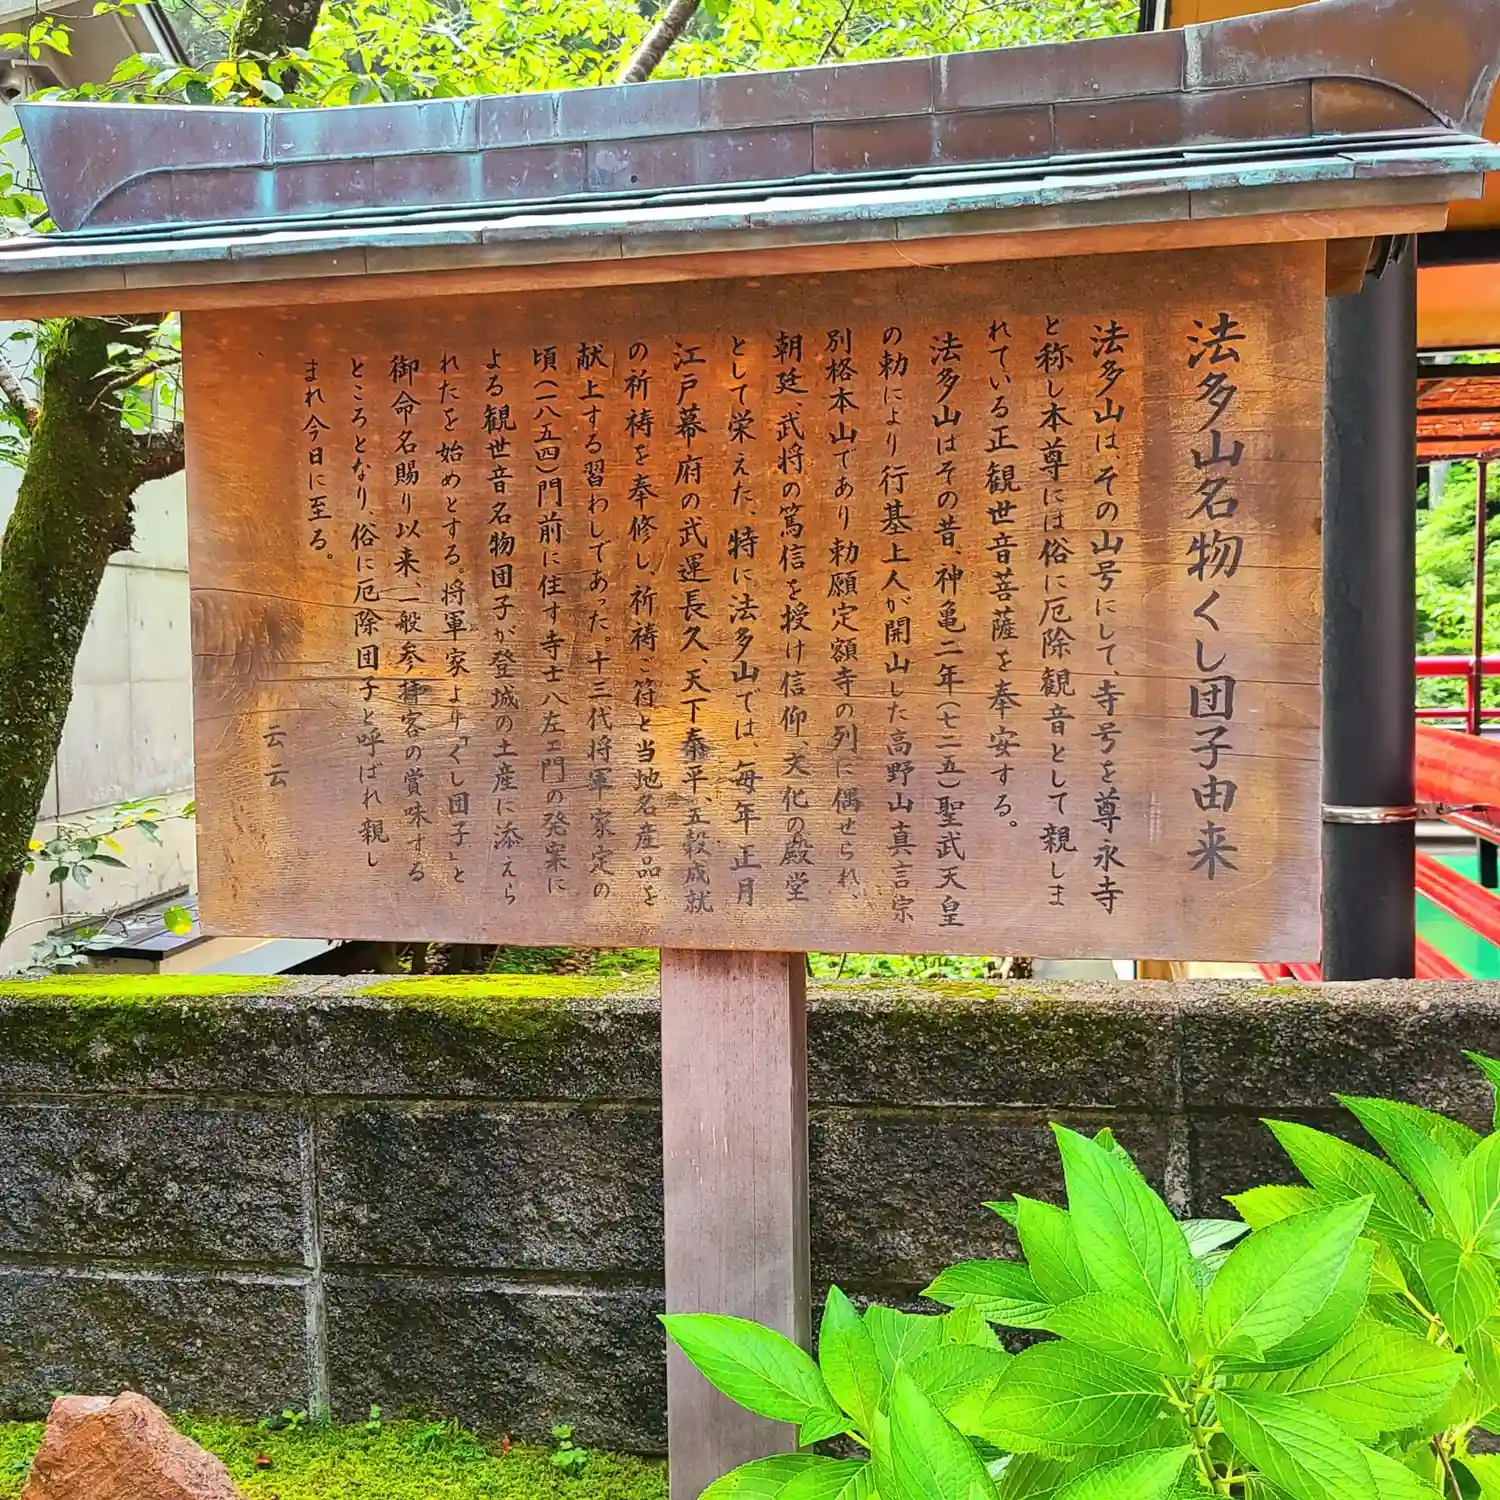 法多山名物くし団子由来
法多山はその山号にして、寺号を尊永寺
と称し本尊には俗に厄除観音として親しま
れている正観世音菩薩を奉安する。
法多山はその昔、神亀二年(七二五)聖武天皇
の勅により行基上人が開山した高野山真言宗
別格本山であり勅願定額寺の列に偶せられ、
朝廷、武将の篤信を授け信仰、文化の殿堂
として栄えた、特に法多山では、毎年正月
江戸幕府の武運長久、天下泰平、五穀成就
の祈祷を奉修し、祈祷ご符と当地名産品を
献上する習わしであった。十三代将軍家定の
頃(一八五四)門前に住す寺士八左ェ門の発案に
よる観世音名物団子が登城の土産に添えら
れたを始めとする。将軍家より「くし団子」と
御命名賜り以来、一般参詣客の賞味する
ところとなり、俗に厄除団子と呼ばれ親し
まれ今日に至る。
云云